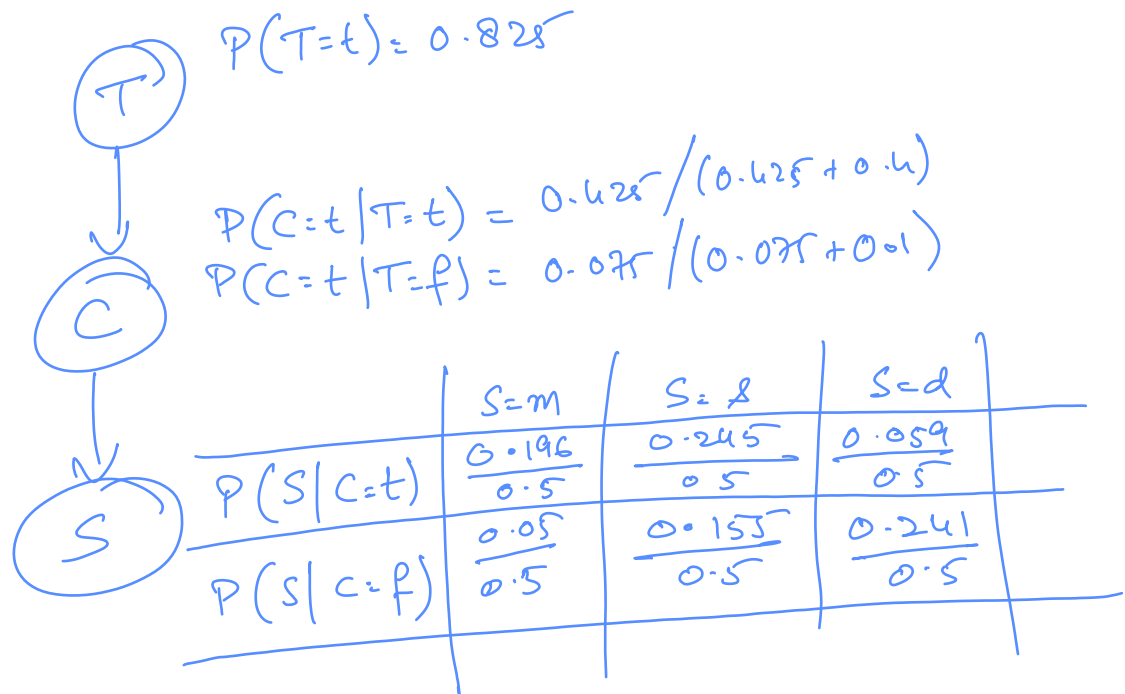 P(T=t) = 0.825
T
P(C=t|T=t) = 0.425/(0.425+0.4)
P(C=t|T=f) = 0.075/(0.075+0.1)
C
S=m S=s S=d
P(S|C=t) 0.196/0.5 0.245/0.5 0.059/0.5
S
P(S|C=f) 0.05/0.5 0.155/0.5 0.241/0.5